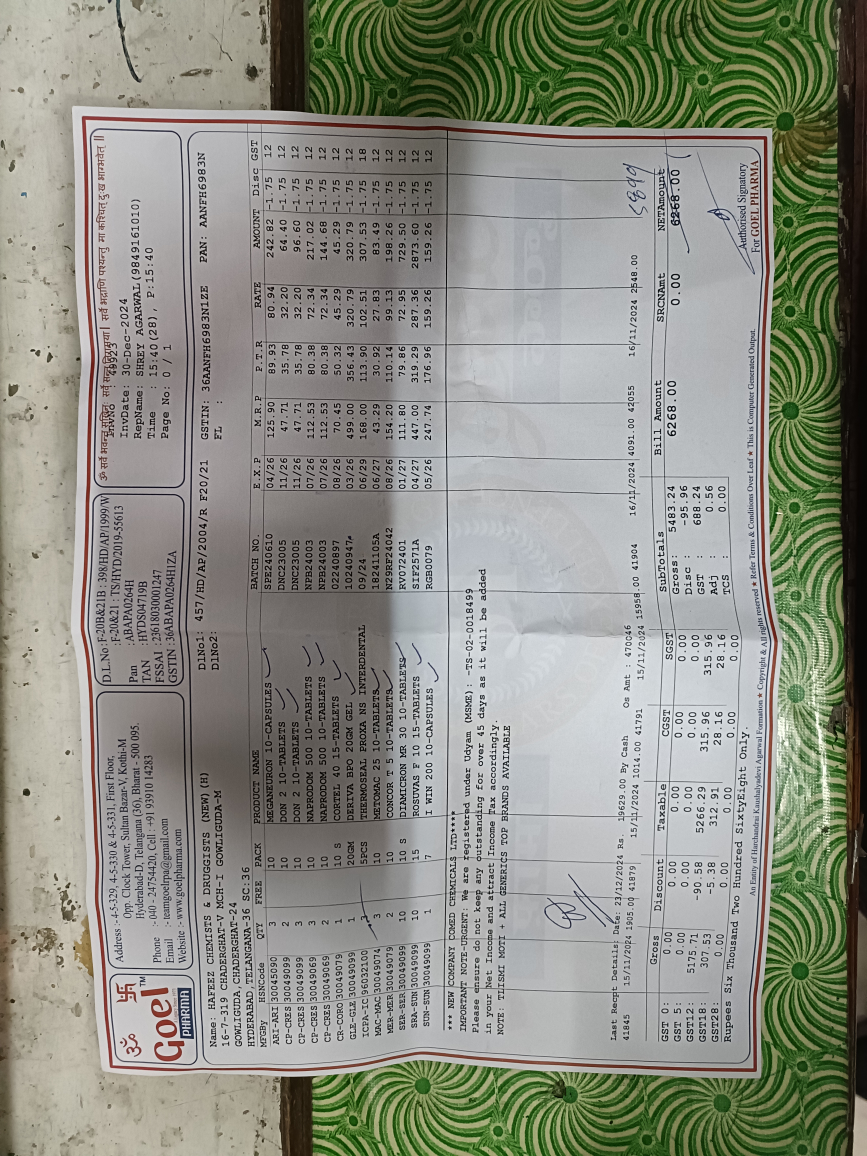 ॐ 卐
Goel™
PHARMA
Address :- 4-5-329, 4-5-330 & 4-5-331, First Floor,
Opp. Clock Tower, Sultan Bazar-V, Kothi-M
Hyderabad-D, Telangana (36), Bharat - 500 095.
Phone : 040 - 24754420, Cell : +91 93910 14283
Email : teamgoelrpa@gmail.com
Website :- www.goelpharma.com
D.L.No :F-20B&21B : 398/HD/AP/1999/W
:F-20&21 : TS/HYD/2019-55613
Pan :ABAPA0264H
TAN :HYDS04719B
FSSAI :23618030001247
GSTIN :36ABAPA0264H1ZA
ॐ सर्वे भवन्तु सुखिनः सर्वे सन्तु निरामया। सर्वे भद्राणि पश्यन्तु मा कश्चित् दुःख भाग्भवेत् ॥
InvNo : 49923
InvDate: 30-Dec-2024
RepName: SHREY AGARWAL(9849161010)
Time : 15:40(28), P:15:40
Page No: 0 / 1
Name: HAFEEZ CHEMISTS & DRUGGISTS (NEW) (H)
16-7-319 CHADERGHAT-V MCH-I GOWLIGUDA-M
GOWLIGUDA,CHADERGHAT-24
HYDERABAD,TELANGANA-36 SC:36
DlNo1: 457/HD/AP/2004/R F20/21 GSTIN: 36AANFH6983N1ZE PAN: AANFH6983N
DlNo2: FL :
MFGBy HSNCode QTY FREE PACK PRODUCT NAME BATCH NO. E.X.P M.R.P P.T.R RATE AMOUNT Disc GST
ARI-ARI 30045090 3 10 MEGANEURON 10-CAPSULES SPE240610 04/26 125.90 89.93 80.94 242.82 -1.75 12
CP-CRES 30049099 2 10 DON 2 10-TABLETS DNC23005 11/26 47.71 35.78 32.20 64.40 -1.75 12
CP-CRES 30049099 3 10 DON 2 10-TABLETS DNC23005 11/26 47.71 35.78 32.20 96.60 -1.75 12
CP-CRES 30049069 3 10 NAPRODOM 500 10-TABLETS NPB24003 07/26 112.53 80.38 72.34 217.02 -1.75 12
CP-CRES 30049069 2 10 NAPRODOM 500 10-TABLETS NPB24003 07/26 112.53 80.38 72.34 144.68 -1.75 12
CR-CORO 30049079 1 10 S CORTEL 40 15-TABLETS 02240897 08/26 70.45 50.32 45.29 45.29 -1.75 12
GLE-GLE 30049099 1 20GM DERIVA BPO 20GM GEL 10240947 03/26 499.00 356.43 320.79 320.79 -1.75 12
ICPA-IC 96032100 3 5PCS THERMOSEAL PROXA NS INTERDENTAL 09/24 06/29 168.00 113.90 102.51 307.53 -1.75 18
MAC-MAC 30049074 3 10 METOMAC 25 10-TABLETS 18241105A 06/27 43.29 30.92 27.83 83.49 -1.75 12
MER-MER 30049079 2 10 CONCOR T 5 10-TABLETS N29RF24042 08/26 154.20 110.14 99.13 198.26 -1.75 12
SER-SER 30049099 10 10 S DIAMICRON MR 30 10-TABLETS RV072401 01/27 111.80 79.86 72.95 729.50 -1.75 12
SRA-SUN 30049099 10 15 ROSUVAS F 10 15-TABLETS SIF2571A 04/27 447.00 319.29 287.36 2873.60 -1.75 12
SUN-SUN 30049099 1 7 I WIN 200 10-CAPSULES RGB0079 05/26 247.74 176.96 159.26 159.26 -1.75 12
*** NEW COMPANY COMED CHEMICALS LTD****
IMPORTANT NOTE-URGENT: We are registered under Udyam (MSME): -TS-02-0018499
Please ensure do not keep any outstanding for over 45 days as it will be added
in your Net Income and attract Income Tax accordingly.
NOTE: TIISMI MOTI + ALL GENERICS TOP BRANDS AVAILABLE
Last Recpt Details: Date: 23/12/2024 Rs. 19629.00 By Cash Os Amt : 470046
41845 15/11/2024 1905.00 41879 15/11/2024 1014.00 41791 15/11/2024 15958.00 41904 16/11/2024 4091.00 42055 16/11/2024 2548.00
5899
Gross Discount Taxable CGST SGST SubTotals Bill Amount SRCNAmt NETAmount
GST 0: 0.00 0.00 0.00 0.00 0.00 Gross: 5483.24 6268.00 0.00 6268.00
GST 5: 0.00 0.00 0.00 0.00 0.00 Disc : -95.96
GST12: 5175.71 -90.58 5266.29 315.96 315.96 GST : 688.24
GST18: 307.53 -5.38 312.91 28.16 28.16 Adj : 0.56
GST28: 0.00 0.00 0.00 0.00 0.00 TCS : 0.00
Rupees Six Thousand Two Hundred SixtyEight Only.
Authorised Signatory
For GOEL PHARMA
An Entity of Harchandrai Kaushalyadevi Agarwal Formation ★ Copyright & All rights reserved ★ Refer Terms & Conditions Over Leaf ★ This is Computer Generated Output.